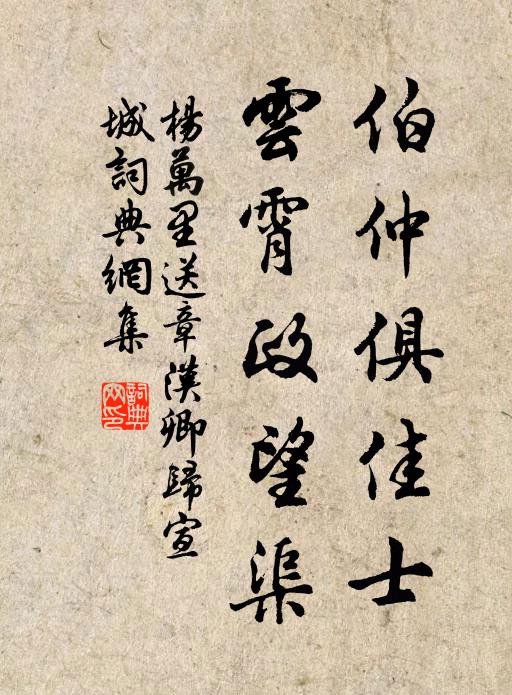 伯仲俱佳士
雲霄政望渠
楊萬里送章漢卿歸宣
城詞典網集
詞典網印